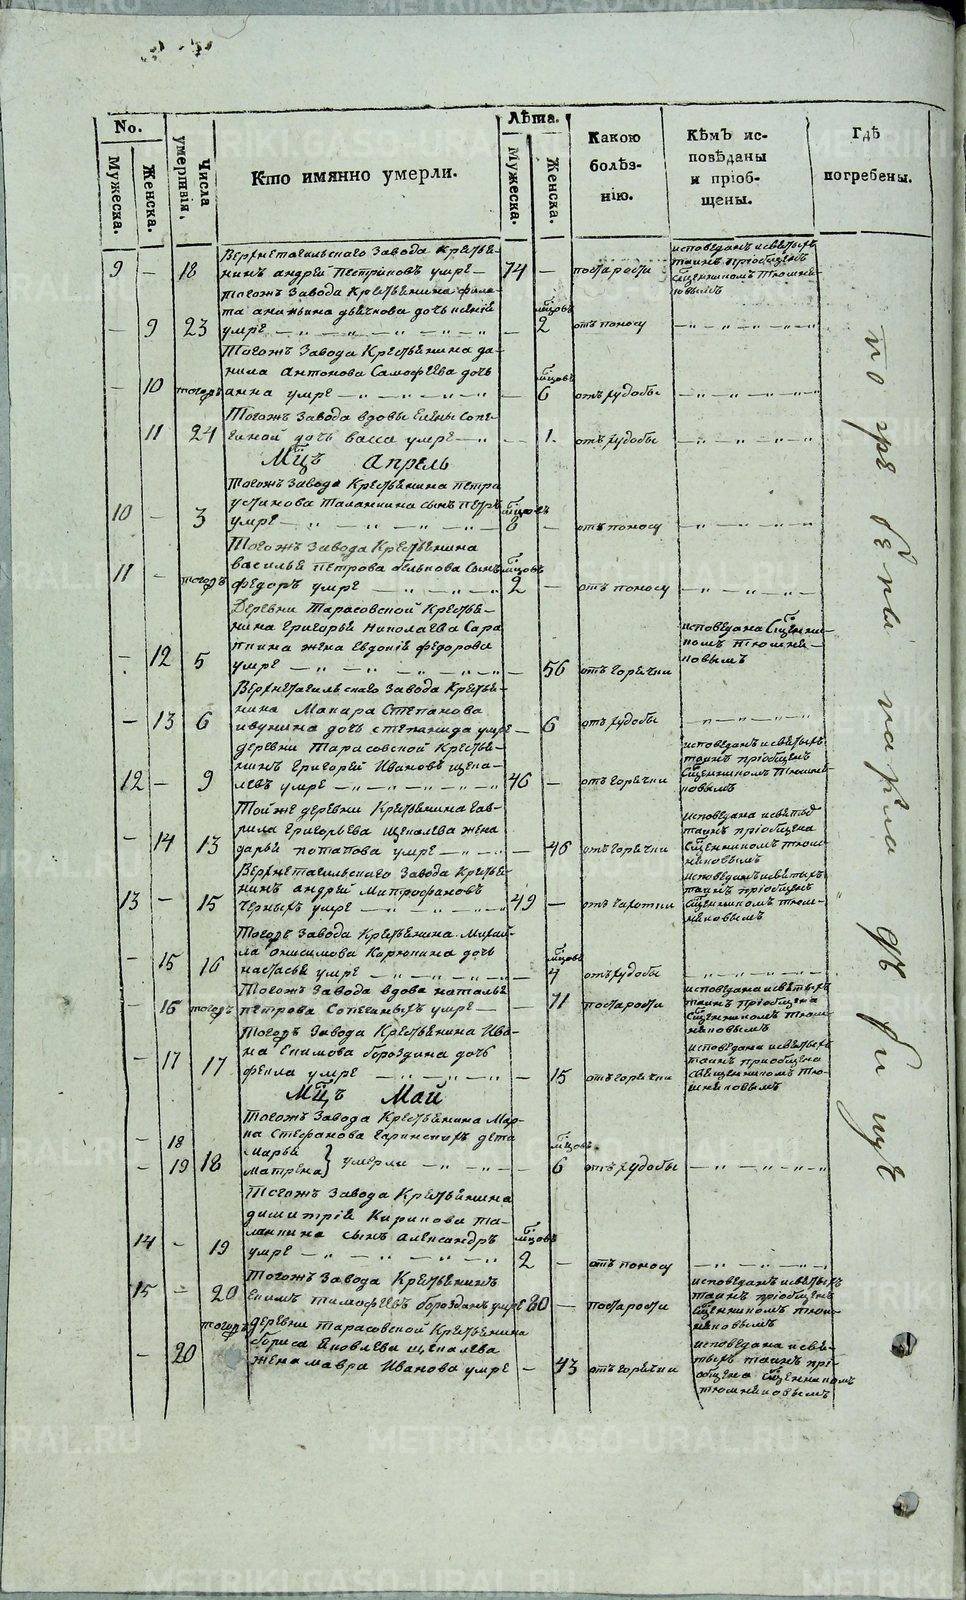 No.
Мужеска.
Женска.
Числа умертвія.
Кто имянно умерли.
Лѣта.
Мужеска.
Женска.
Какою болѣз-нію.
Кѣмъ ис-повѣданы и пріоб-щены.
Гдѣ погребены.
Верхнетагильскаго завода Крестья-
9 — 18 нинъ андрей Петриковъ умре — 74 — постарости
исповеданъ исвятыхъ таинъ пріобщенъ Сщенникомъ Тюшня-ковымъ
тогожъ завода Крестьянина фила-
та ананьина дьячкова дочь
— 9 23 умре — мцовъ 2 отъ поносу
Тогожъ завода Крестьянина да-
нила Антонова Самофеева дочь
— 10 тогожъ анна умре — мцовъ 6 отъ худобы
Тогожъ завода вдовы елены
11 24 дочь васса умре — 1. отъ худобы
Мцъ Апрель
Тогожъ завода Крестьянина петра
устинова таланкина сынъ петръ
10 — 3 умре — мцовъ 8 — отъ поносу
Тогожъ завода Крестьянина
василья петрова белькова сынъ
11 — тогожъ федоръ умре — мцовъ 2 — отъ поносу
Деревни Тарасовской Крестья-
нина Григорья Николаева Сара
пкина жена Евдокія федорова
— 12 5 умре — 56 отъ горячки
исповедана Сщенни-комъ тюшня-ковымъ
Верхнетагильскаго завода Крестья-
нина Макара Степанова
— 13 6 ивукина дочь степанида умре — 6 отъ худобы
деревни Тарасовской Крестья-
нинъ Григорей Ивановъ щепа-
12 — 9 левъ умре — 46 — отъ горячки
исповеданъ исвятыхъ таинъ пріобщенъ Сщенникомъ Тюшня-ковымъ
Тойже деревни Крестьянина гав-
рила Григорьева Щепалева жена
— 14 13 дарья потапова умре — 46 отъ горячки
исповедана исвятыхъ таинъ пріобщена Сщенникомъ тюш-няковымъ
Верхнетагильскаго завода Крестья-
нинъ андрей Митрофановъ
13 — 15 Черныхъ умре — 49 — отъ чахотки
исповеданъ исвятыхъ таинъ пріобщенъ Сщенникомъ тюш-няковымъ
Тогожъ завода Крестьянина Михай-
ла онисимова Корюкина дочь
— 15 16 настасья умре — мцовъ 4 отъ худобы
Тогожъ завода вдова наталья
— 16 тогожъ петрова умре — 71 постарости
исповедана исвятыхъ таинъ пріобщена Сщенникомъ тюш-няковымъ
Тогожъ завода Крестьянина Ива-
на Екимова бороздина дочь
— 17 17 фекла умре — 15 отъ горячки
исповедана исвятыхъ таинъ приобщена священникомъ Тю-шняковымъ
Мцъ Май
Тогожъ завода Крестьянина Мар-
ка Стефанова гаринскихъ дети
— 18 марья
— 19 18 матрена } умерли — мцовъ 6 отъ худобы
Тогожъ завода Крестьянина
димитрія Кирикова та-
ланкина сынъ александръ
14 — 19 умре — мцовъ 2 — отъ поносу
Тогожъ завода Крестьянинъ
15 — 20 екимъ тимофеевъ бороздинъ умре 80 — постарости
исповеданъ исвятыхъ таинъ пріобщенъ Сщенникомъ тюш-няковымъ
тогожъ деревни тарасовской Крестьянина
бориса Яковлева щепалева
— 20 жена мавра Иванова умре — 43 отъ горячки
исповедана исвя-тыхъ таинъ прі-общена Сщенникомъ тюшняковымъ
погребены на кладбищѣ
METRIKI.GASO-URAL.RU